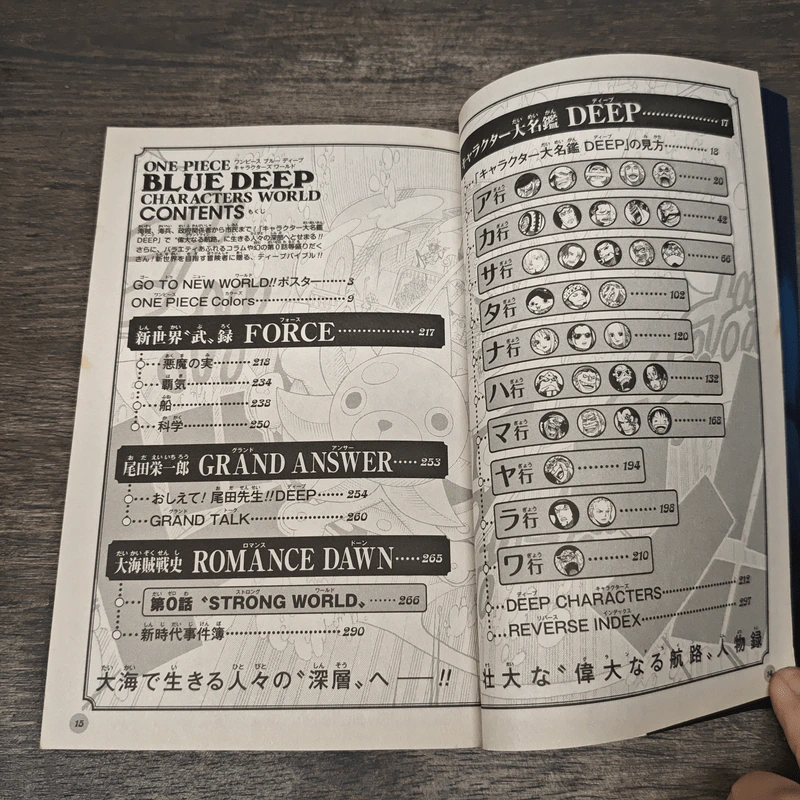 ONE PIECE ワンピース ブルー ディープ キャラクターズ ワールド
BLUE DEEP
CHARACTERS WORLD
CONTENTS もくじ
海賊、海兵、政府関係者から市民まで!「キャラクター大名鑑
DEEP」で“偉大なる航路”に生きる人々の深層へとせまる!!
さらに、バラエティあふれるコラムや幻の第0話等盛りだく
さん!新世界を目指す冒険者に贈る、ディープバイブル!!
GO TO NEW WORLD!!ポスター……3
ONE PIECE Colors……9
新世界“武”録 FORCE……217
悪魔の実……218
覇気……234
船……238
科学……250
尾田栄一郎 GRAND ANSWER……253
おしえて!尾田先生!!DEEP……254
GRAND TALK……260
大海賊戦史 ROMANCE DAWN……265
第0話 “STRONG WORLD”……266
新時代事件簿……290
大海で生きる人々の“深層”へ——!!
15
キャラクター大名鑑 DEEP……17
「キャラクター大名鑑 DEEP」の見方……18
ア行……20
カ行……42
サ行……66
タ行……102
ナ行……120
ハ行……132
マ行……168
ヤ行……194
ラ行……198
ワ行……210
DEEP CHARACTERS……212
REVERSE INDEX……297
壮大な“偉大なる航路”人物録